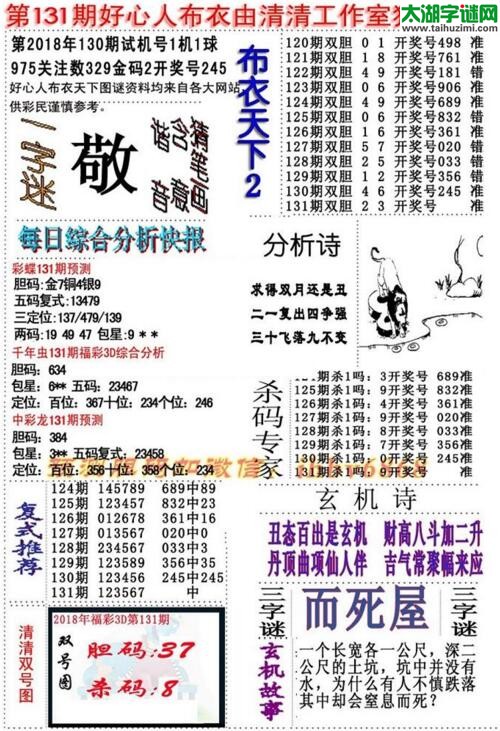 第131期好心人布衣由清清工作室
太湖字谜网
www.taihuzimi.com
第2018年130期试机号1机1球
975关注数329金码2开奖号245
好心人布衣天下图谜资料均来自各大网站
供彩民谨慎参考。
一字迷
敬
猜笔画
含意
谐音
布衣天下2
120期双胆 0 1 开奖号498 准
121期双胆 1 8 开奖号761 准
122期双胆 4 9 开奖号181 错
123期双胆 0 6 开奖号906 准
124期双胆 4 9 开奖号689 准
125期双胆 0 3 开奖号832 准
126期双胆 1 6 开奖号361 准
127期双胆 5 7 开奖号020 错
128期双胆 2 5 开奖号033 错
129期双胆 1 2 开奖号356 错
130期双胆 4 6 开奖号245 准
131期双胆 2 3 开奖号 准
每日综合分析快报
彩蝶131期预测
胆码:金7铜4银9
五码复式:13479
三定位:137/479/139
两码:19 49 47 包星:9 * *
千年虫131期福彩3D综合分析
胆码: 634
包星: 6** 五码: 23467
定位: 百位: 367十位: 234个位: 246
中彩龙131期预测
胆码: 384
包星: 3** 五码复式: 23458
定位: 百位: 356十位: 358个位: 234
分析诗
求得双月还是丑
二一复出四争强
三十飞落九不变
杀码专家
124期杀1吗: 3开奖号 689准
125期杀1吗: 9开奖号 832准
126期杀1吗: 4开奖号 361准
127期杀1吗: 9开奖号 020准
128期杀1吗: 4开奖号 033准
129期杀1吗: 7开奖号 356准
130期杀1吗: 0开奖号 245准
131期杀1吗: 9开奖号 准
复式推荐
124期 145789 689中89
125期 123457 832中23
126期 012678 361中16
127期 013567 020中0
128期 234567 033中3
129期 013567 356中356
130期 123456 245中245
131期 123567 中
玄机诗
丑态百出是玄机 财高八斗加二升
丹顶曲项仙人伴 吉气常聚幅来应
清清双号图
2018年福彩3D第131期
双号图
胆码:37
杀码:8
三字谜
而死屋
三字谜
玄机故事
一个长宽各一公尺，深二
公尺的土坑，坑中并没有
水，为什么有人不慎跌落
其中却会窒息而死？